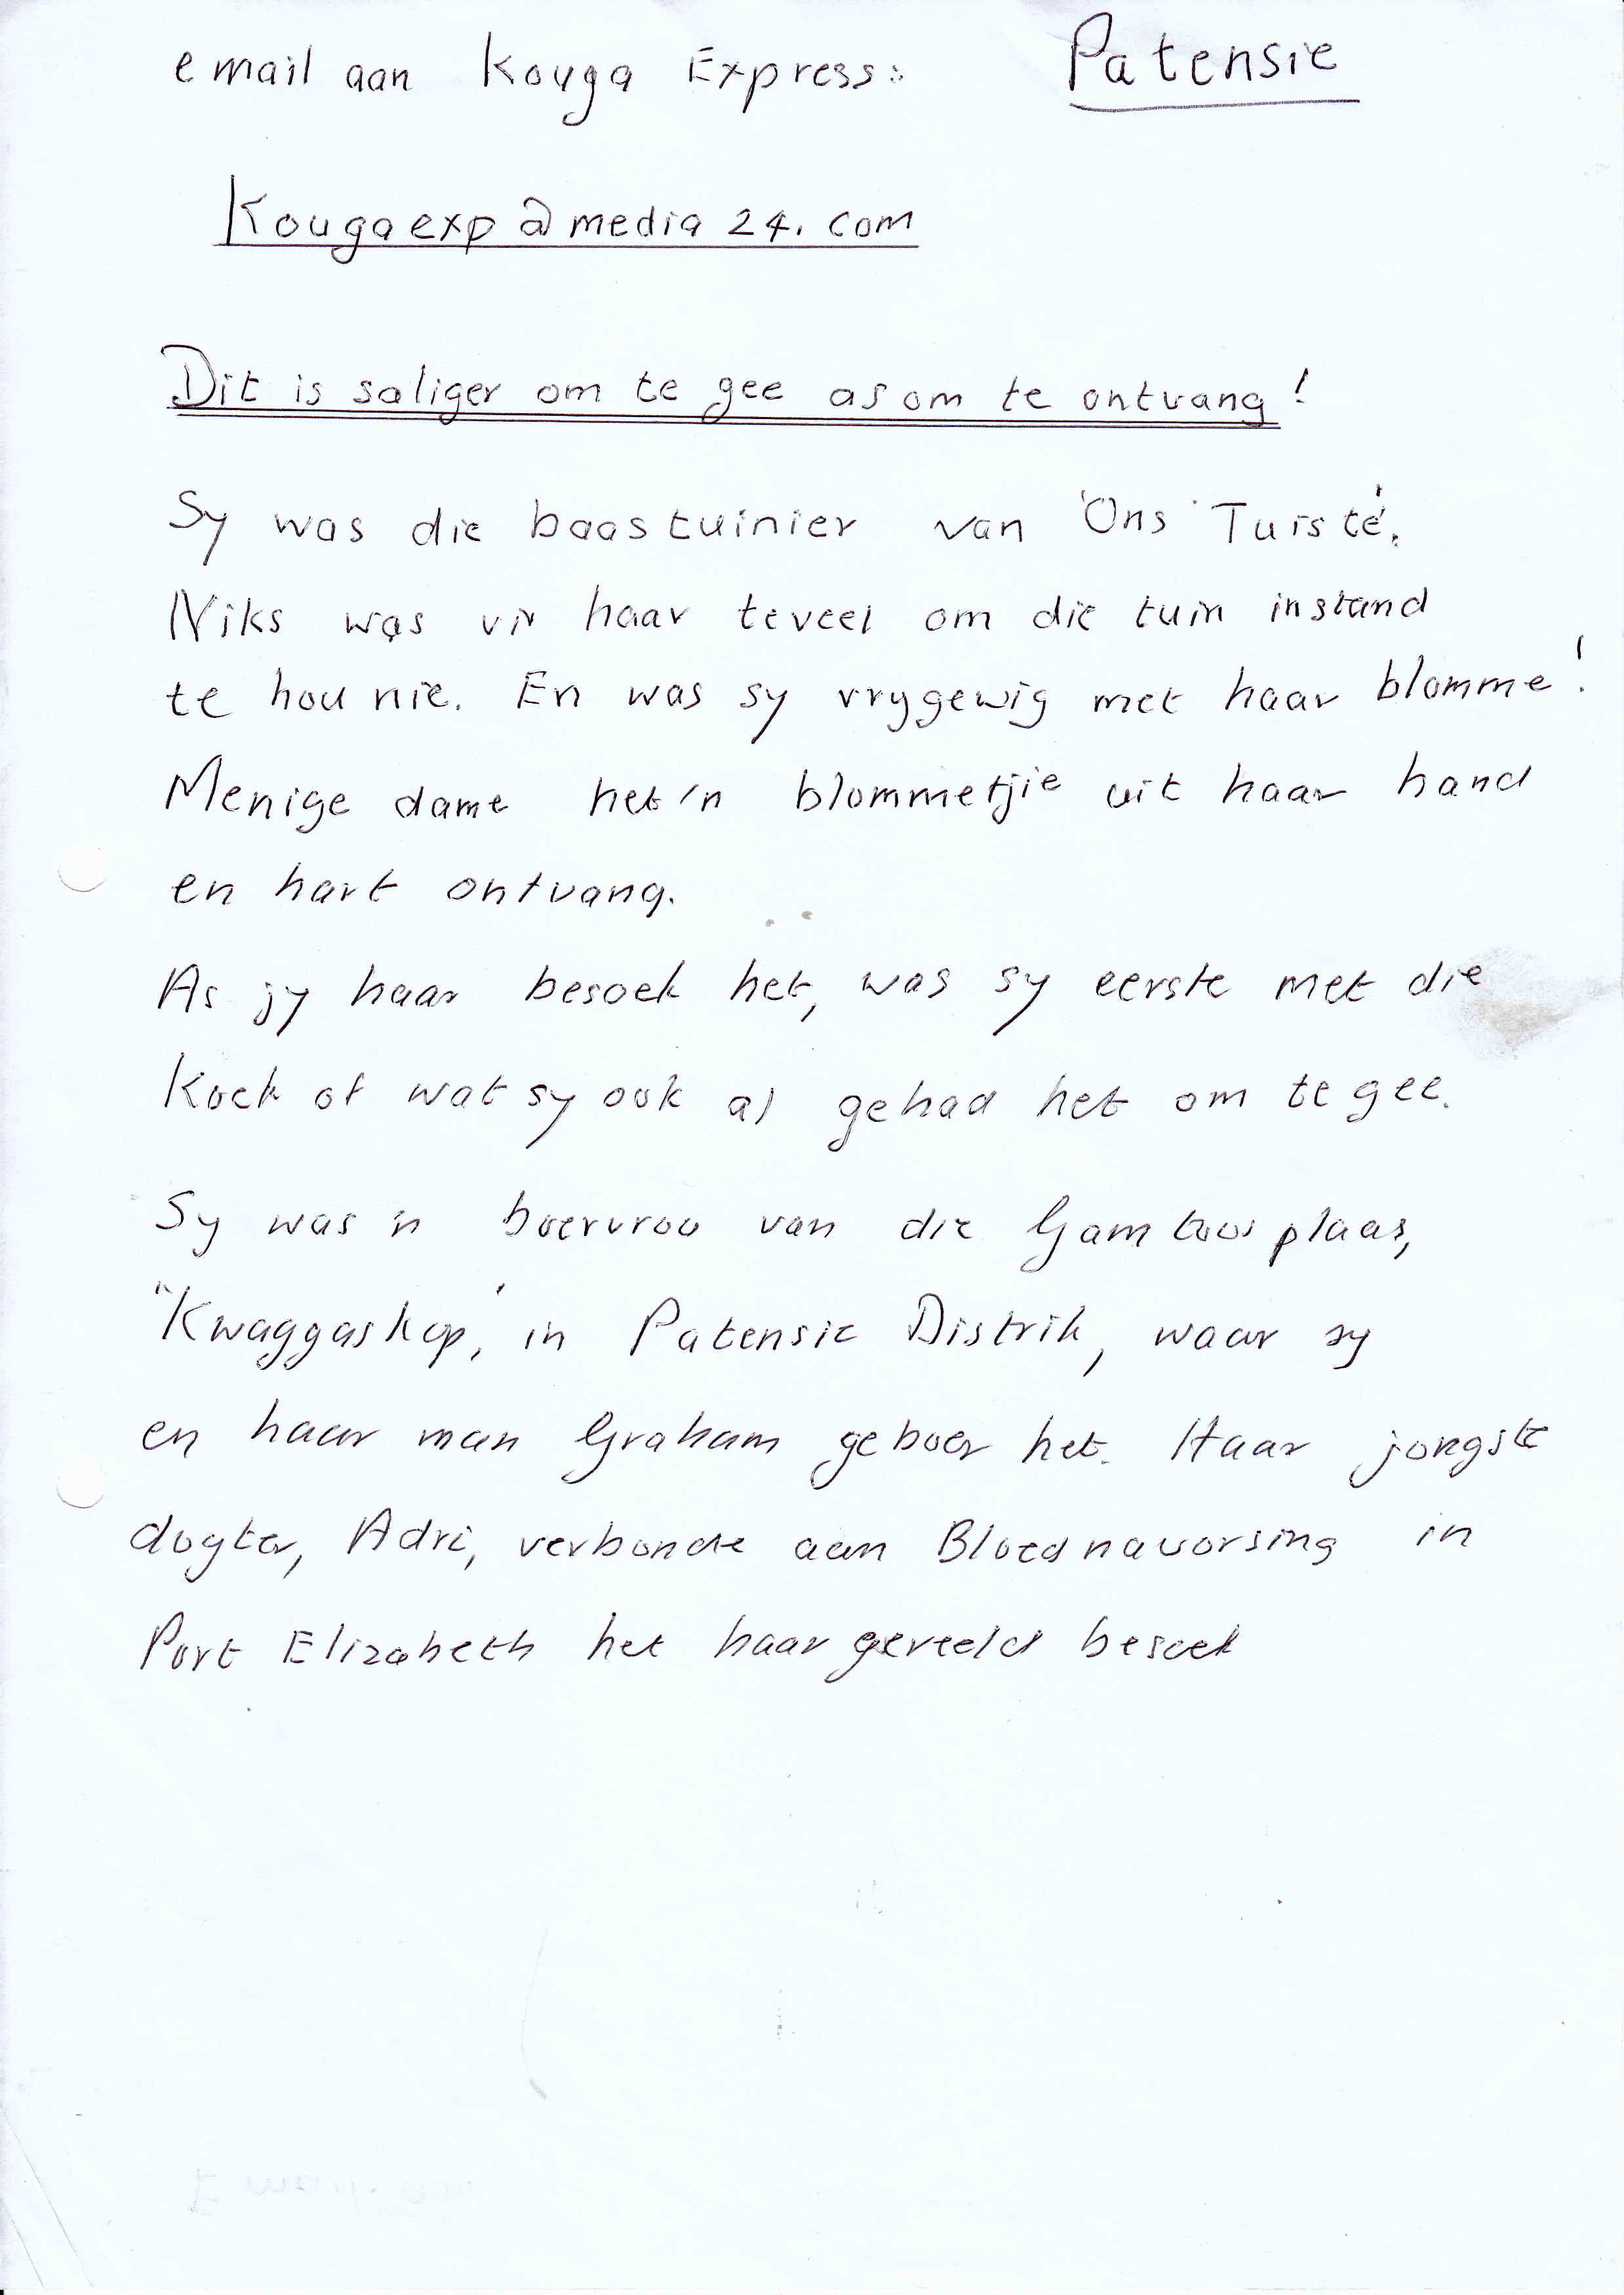 email aan Kouga Express: Patensie
Kougaexp@media24.com
Dit is saliger om te gee as om te ontvang!
Sy was die baastuinier van 'Ons Tuiste'.
Niks was vir haar teveel om die tuin instand
te hou nie. En was sy vrygewig met haar blomme!
Menige dame het 'n blommetjie uit haar hand
en hart ontvang.
As jy haar besoek het, was sy eerste met die
Koek of wat sy ook al gehad het om te gee.
Sy was 'n boervrou van die Gamtoos plaas,
"Kwaggaskop", in Patensie Distrik, waar sy
en haar man Graham geboer het. Haar jongste
dogter, Adri, verbonde aan Bloednavorsing in
Port Elizabeth het haar gereeld besoek